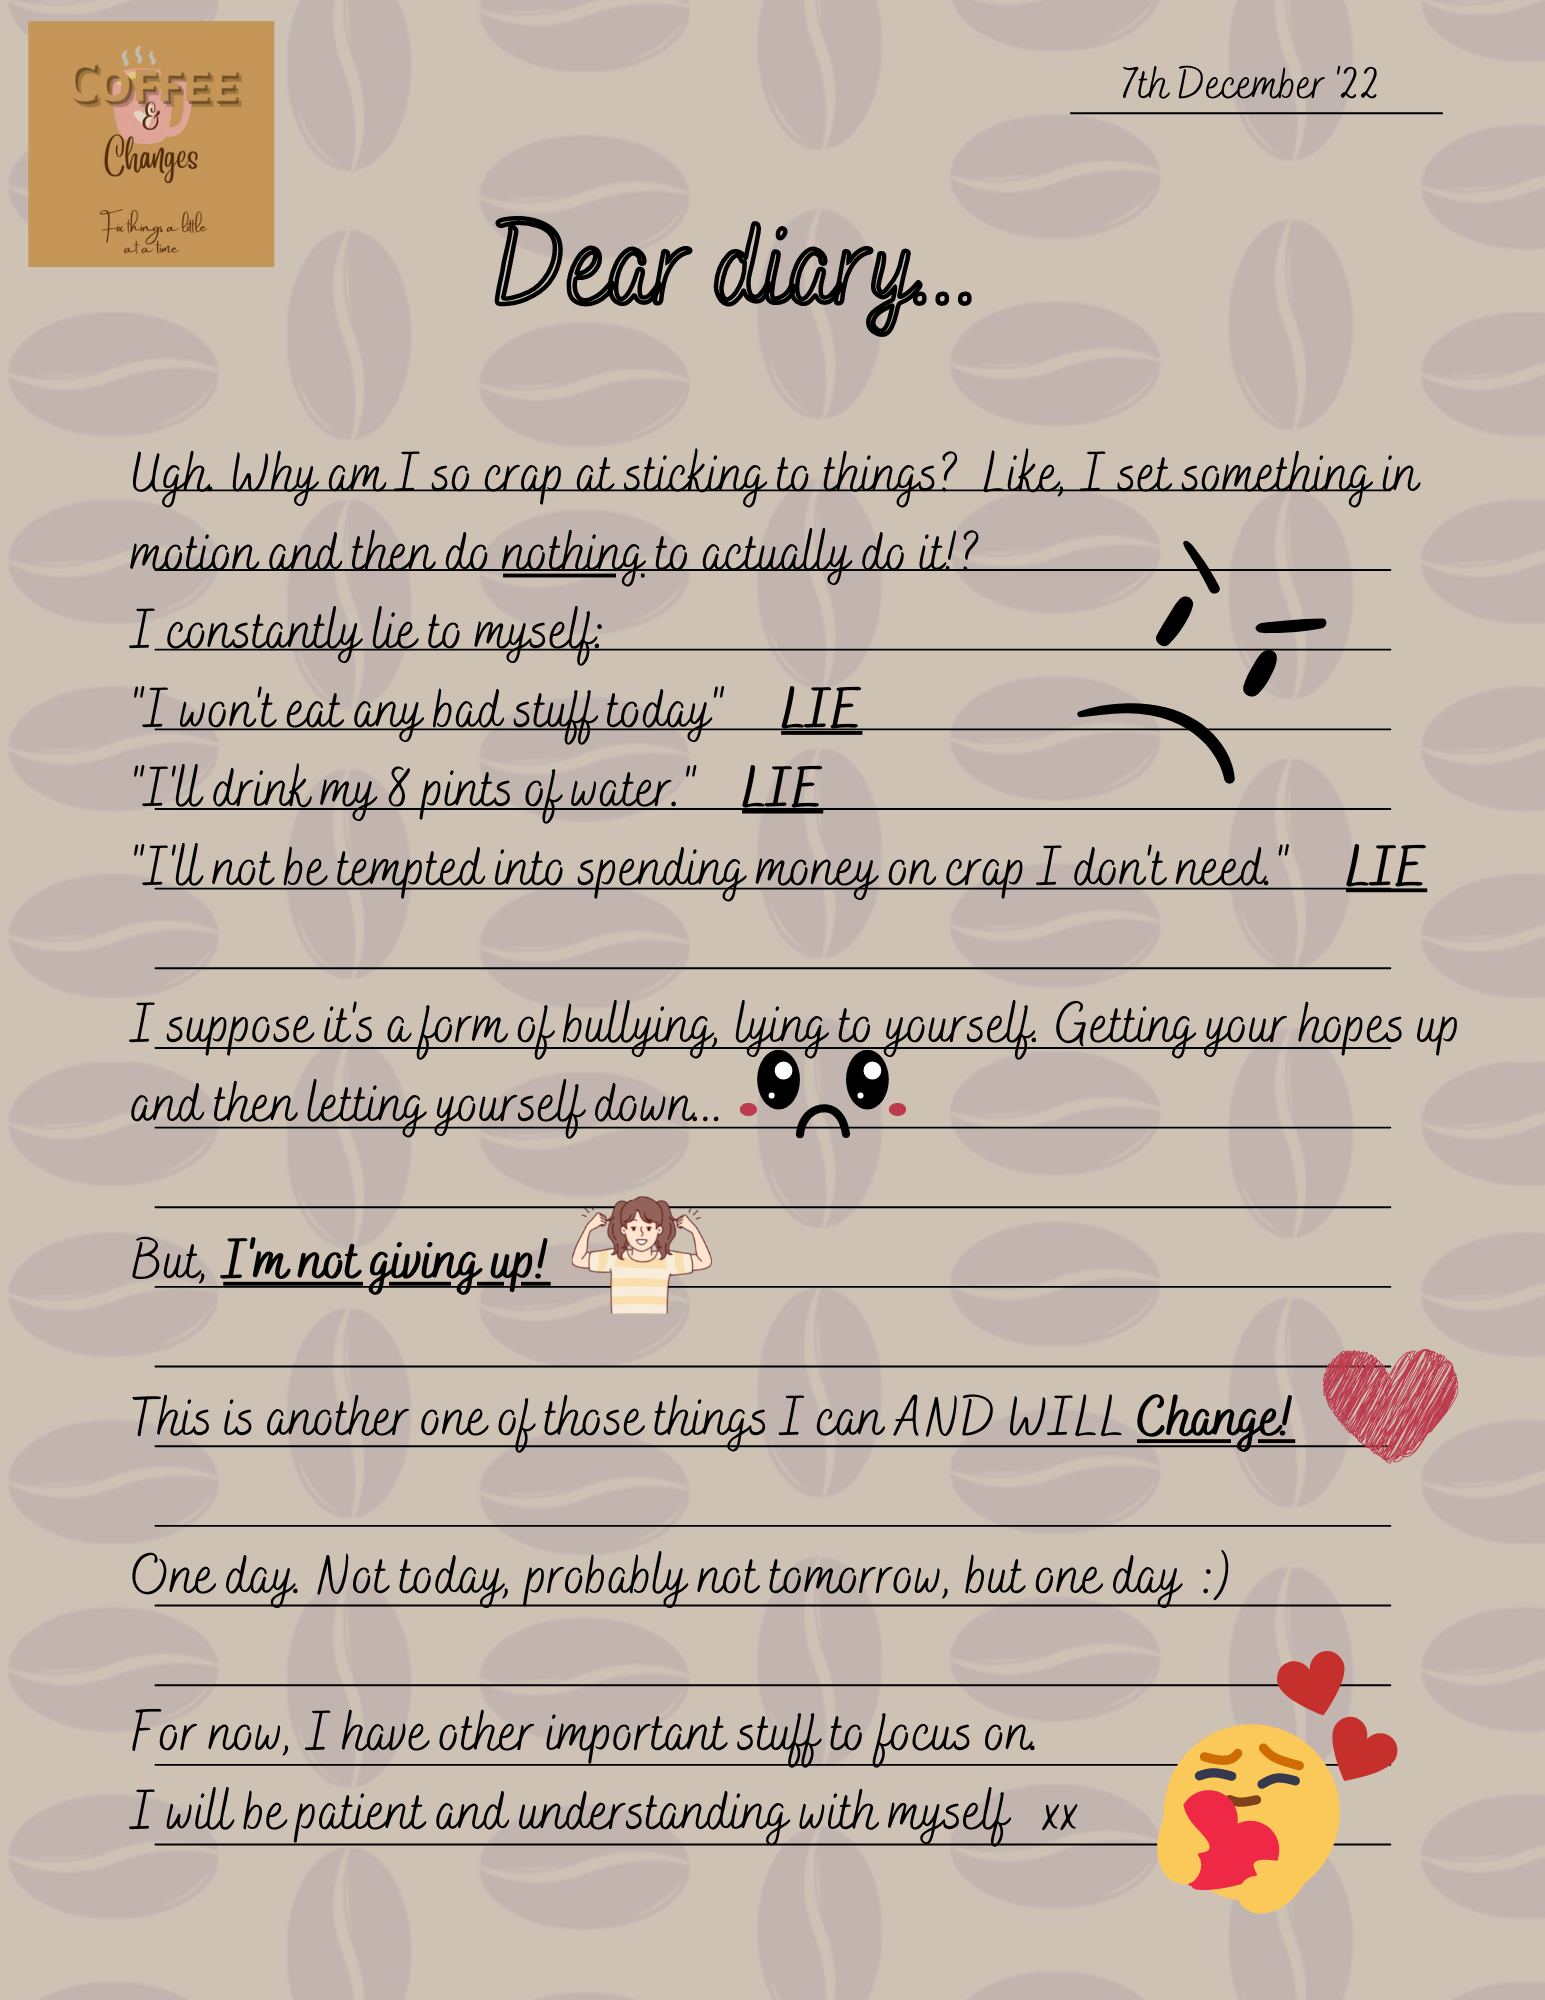 COFFEE
&
Changes
Fix things a little
at a time
7th December '22
Dear diary...
Ugh. Why am I so crap at sticking to things? Like, I set something in
motion and then do nothing to actually do it!?
I constantly lie to myself:
"I won't eat any bad stuff today" LIE
"I'll drink my 8 pints of water." LIE
"I'll not be tempted into spending money on crap I don't need." LIE
I suppose it's a form of bullying, lying to yourself. Getting your hopes up
and then letting yourself down...
But, I'm not giving up!
This is another one of those things I can AND WILL Change!
One day. Not today, probably not tomorrow, but one day :)
For now, I have other important stuff to focus on.
I will be patient and understanding with myself xx